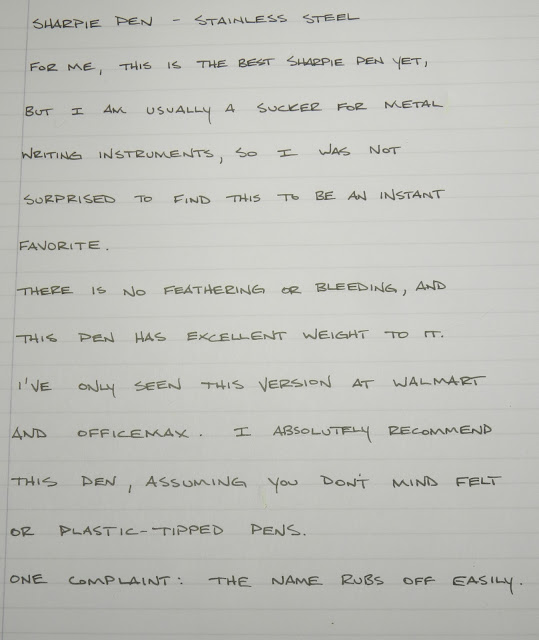 SHARPIE PEN - STAINLESS STEEL
FOR ME, THIS IS THE BEST SHARPIE PEN YET,
BUT I AM USUALLY A SUCKER FOR METAL
WRITING INSTRUMENTS, SO I WAS NOT
SURPRISED TO FIND THIS TO BE AN INSTANT
FAVORITE.
THERE IS NO FEATHERING OR BLEEDING, AND
THIS PEN HAS EXCELLENT WEIGHT TO IT.
I'VE ONLY SEEN THIS VERSION AT WALMART
AND OFFICEMAX. I ABSOLUTELY RECOMMEND
THIS PEN, ASSUMING YOU DON'T MIND FELT
OR PLASTIC-TIPPED PENS.
ONE COMPLAINT: THE NAME RUBS OFF EASILY.